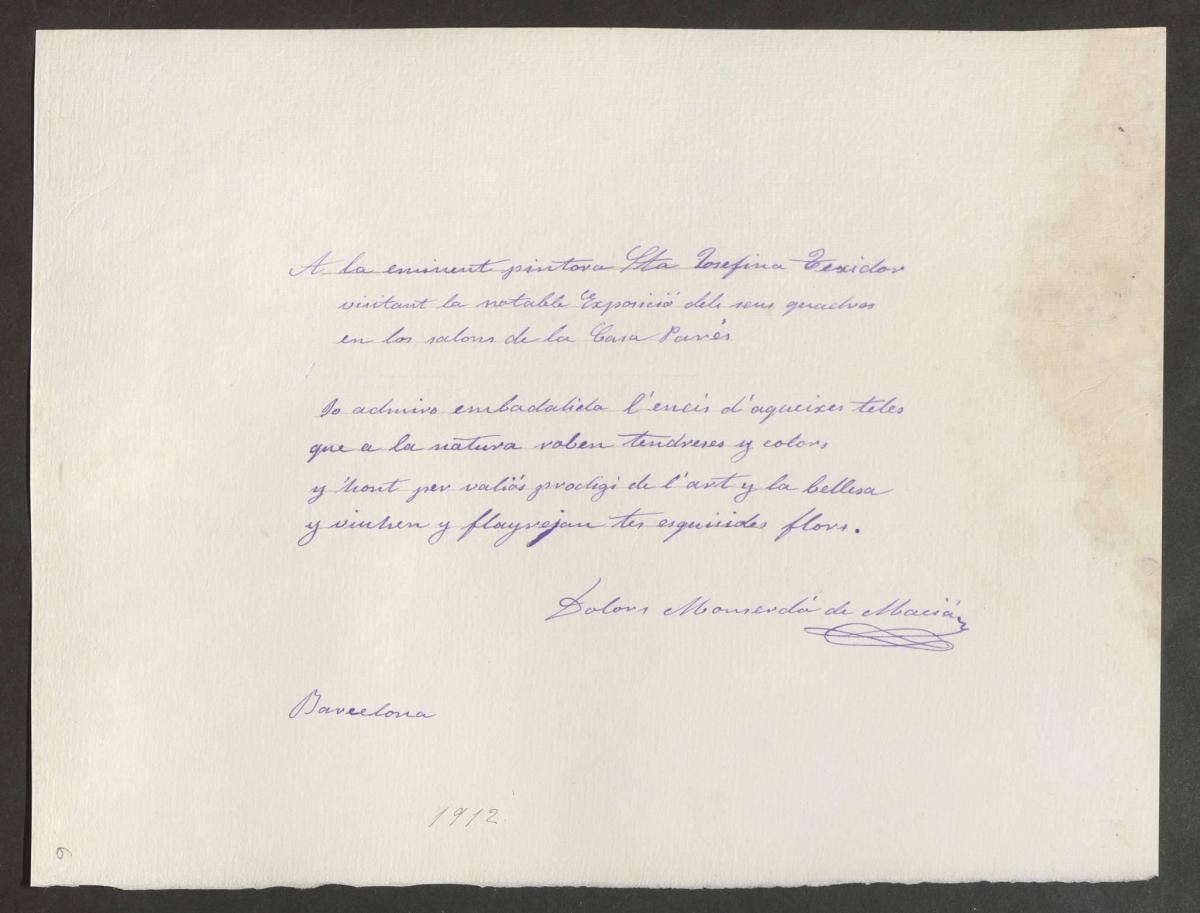 A la eminent pintora Sta Josefina Texidor
visitant la notable Exposició dels seus quadros
en los salons de la Casa Parés
Jo admiro embadalida l'encís d'aqueixes teles
que a la natura roben tendreses y colors
y 'hont per valiós prodigi de l'art y la bellesa
y viuhen y flayrejan tes esquisides flors.
Dolors Monserdá de Maciá
Barcelona
1912
6